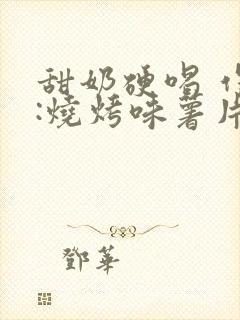 甜奶硬唱
:燒烤味薯片
鄧華